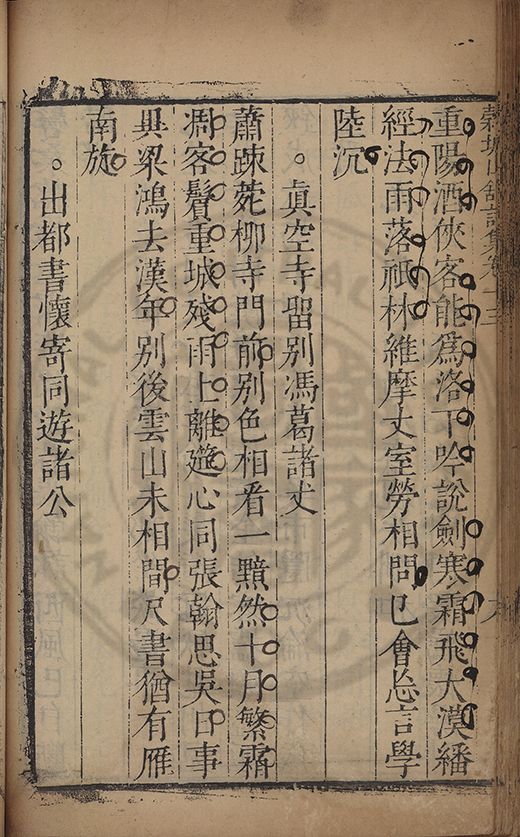 穀城山館詩集卷十三
重陽酒俠客能爲洛下吟說劍寒霜飛大漠繙
經法雨落祇林維摩丈室勞相問已會忘言學
陸沉
真空寺留別馮葛諸丈
蕭疎菀柳寺門前別色相看一黯然十月繁霜
凋客鬢重城殘雨上離筵心同張翰思吳日事
異梁鴻去漢年別後雲山未相間尺書猶有雁
南旋
出都書懷寄同遊諸公